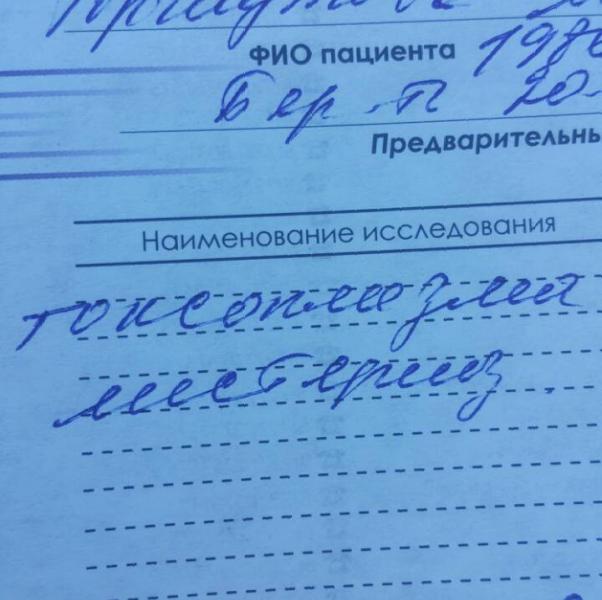 ФИО пациента 198
Бер-ть 20
Предварительны
Наименование исследования
токсоплазма
листериз